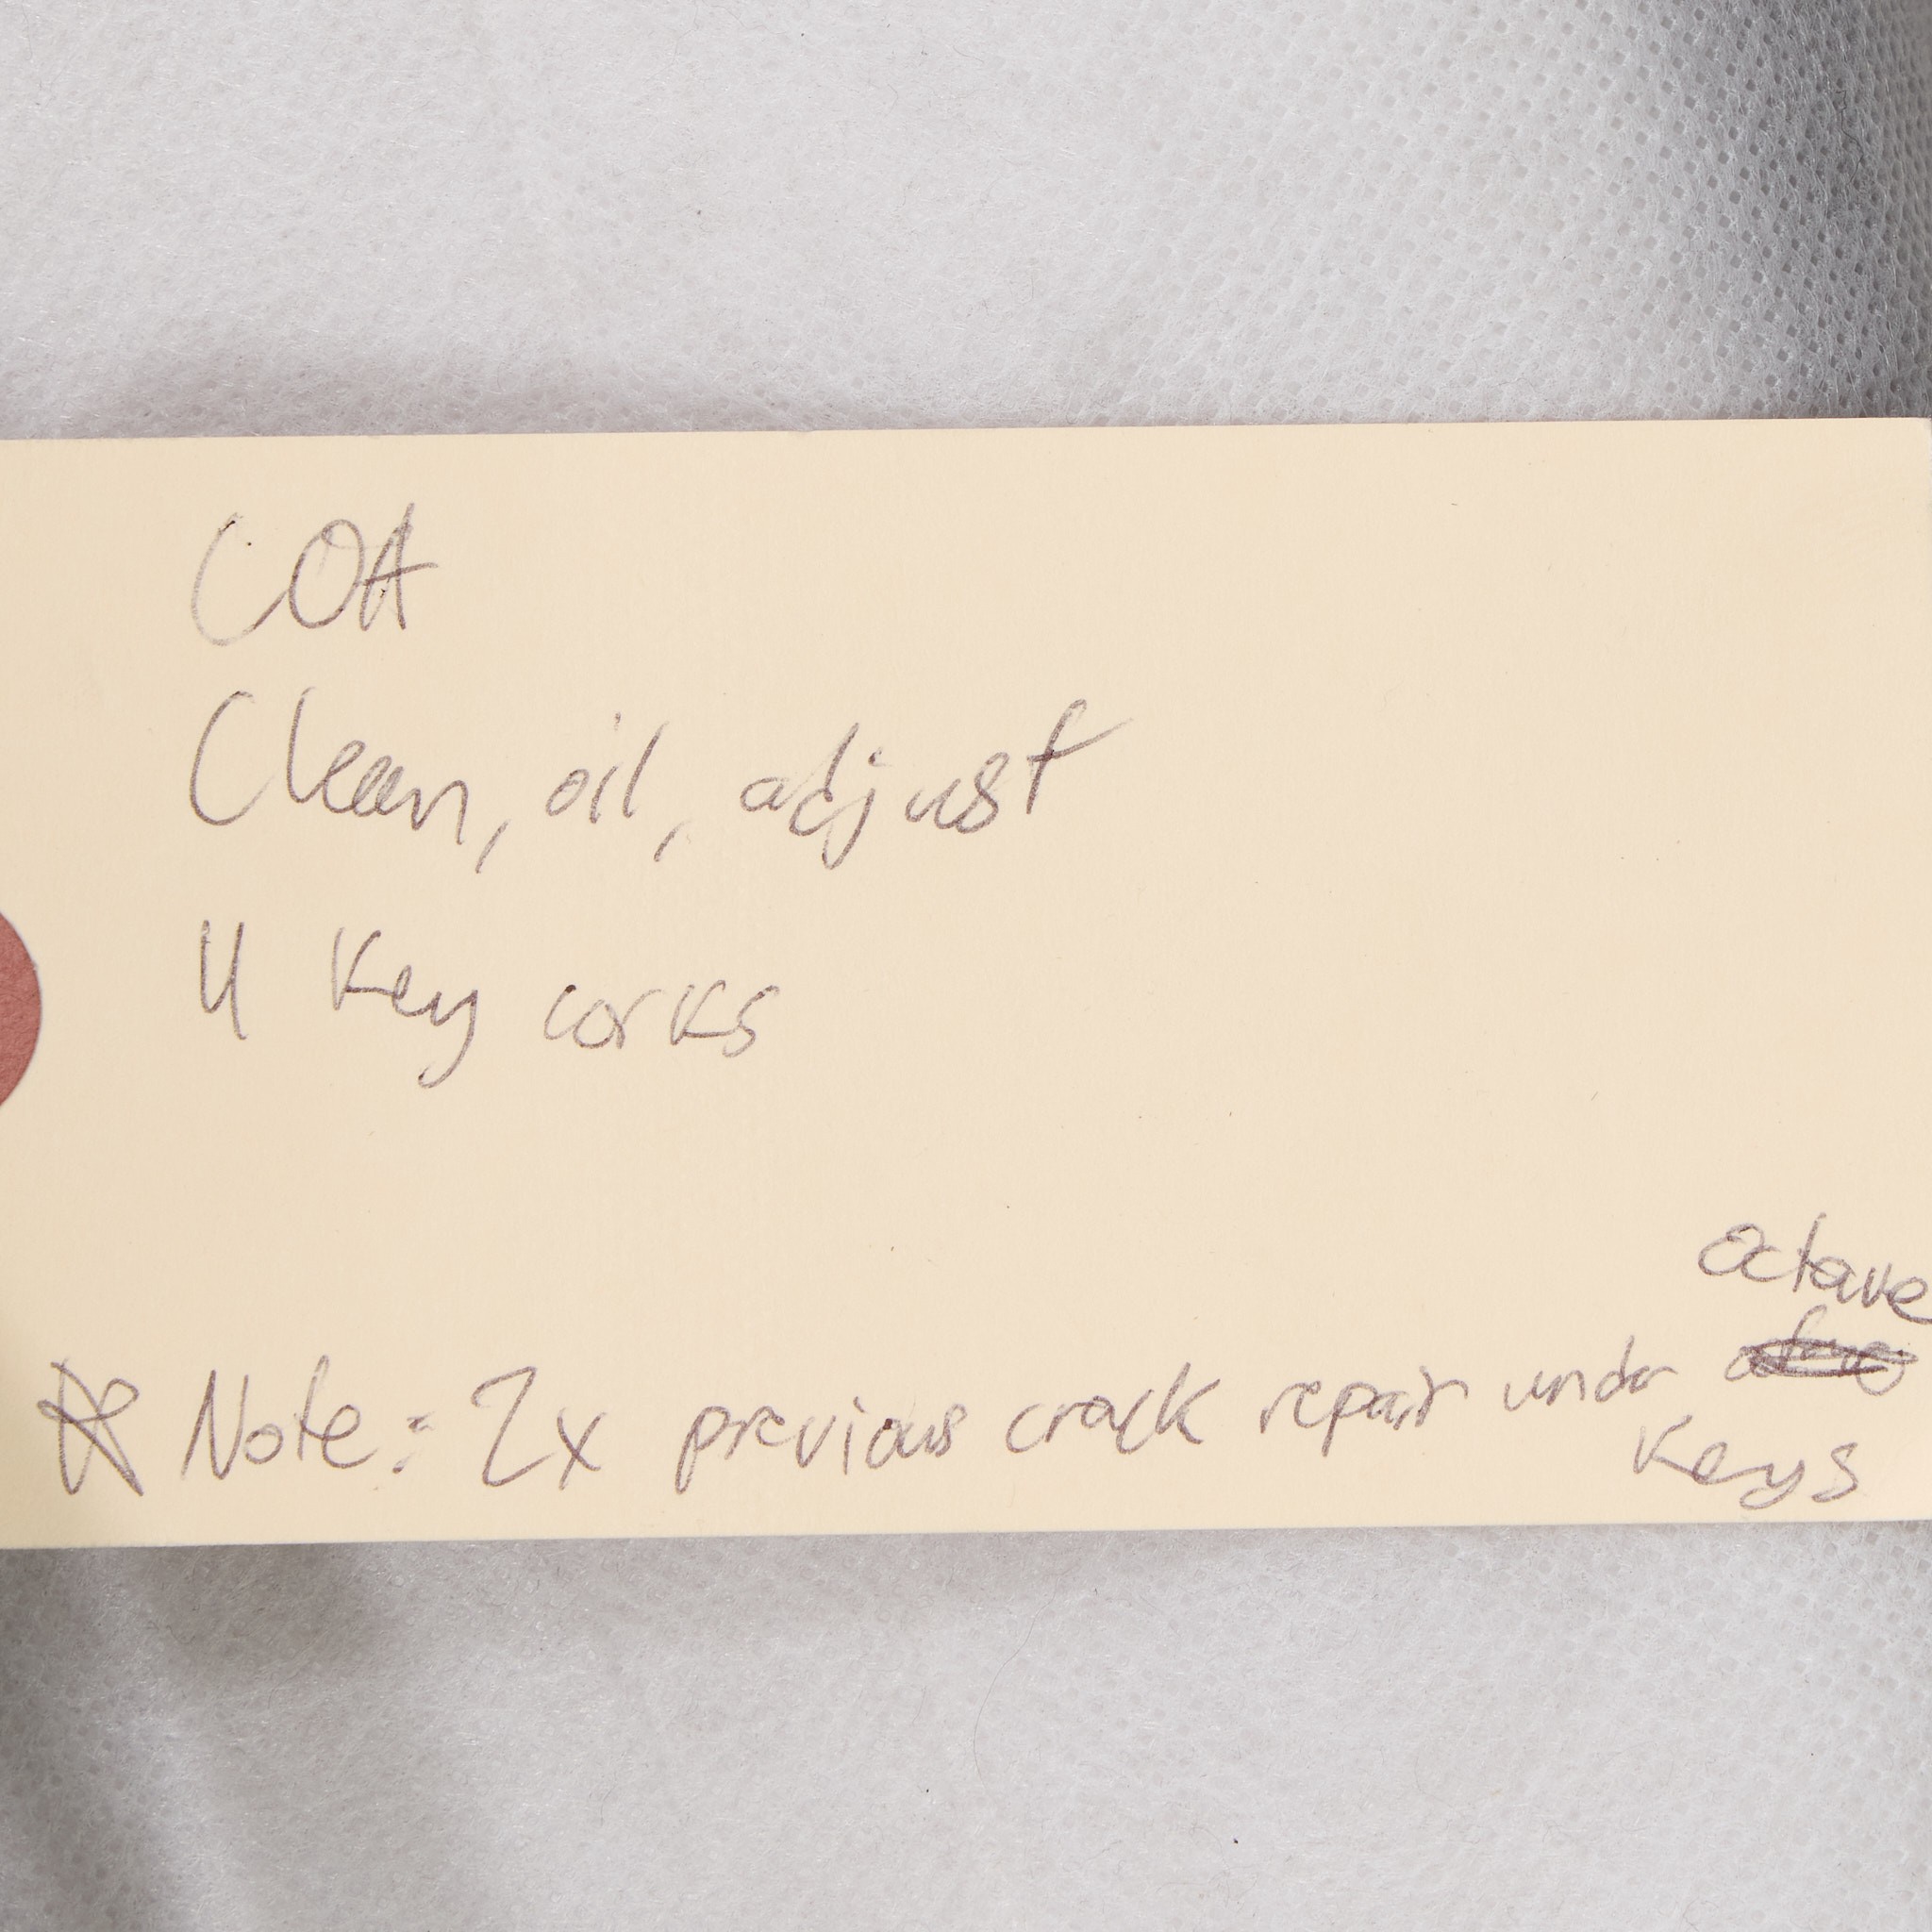 COA
Clean, oil, adjust
4 Key corks
Note: 2x previous crack repair under octave
Keys